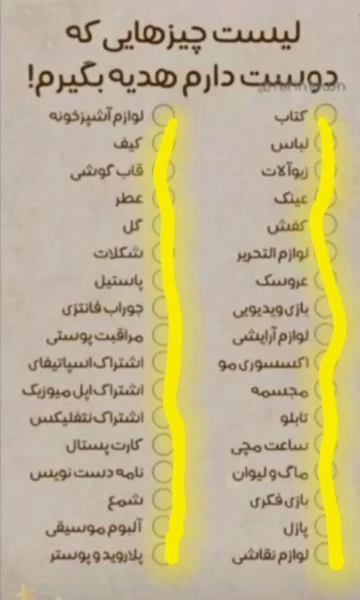 لیست چیزهایی که
دوست دارم هدیه بگیرم!
کتاب
لباس
زیورآلات
عینک
کفش
لوازم التحریر
عروسک
بازی ویدیویی
لوازم آرایشی
اکسسوری مو
مجسمه
تابلو
ساعت مچی
ماگ و لیوان
بازی فکری
پازل
لوازم نقاشی
لوازم آشپزخونه
کیف
قاب گوشی
عطر
گل
شکلات
پاستیل
جوراب فانتزی
مراقبت پوستی
اشتراک اسپاتیفای
اشتراک اپل میوزیک
اشتراک نتفلیکس
کارت پستال
نامه دست نویس
شمع
آلبوم موسیقی
پلاروید و پوستر